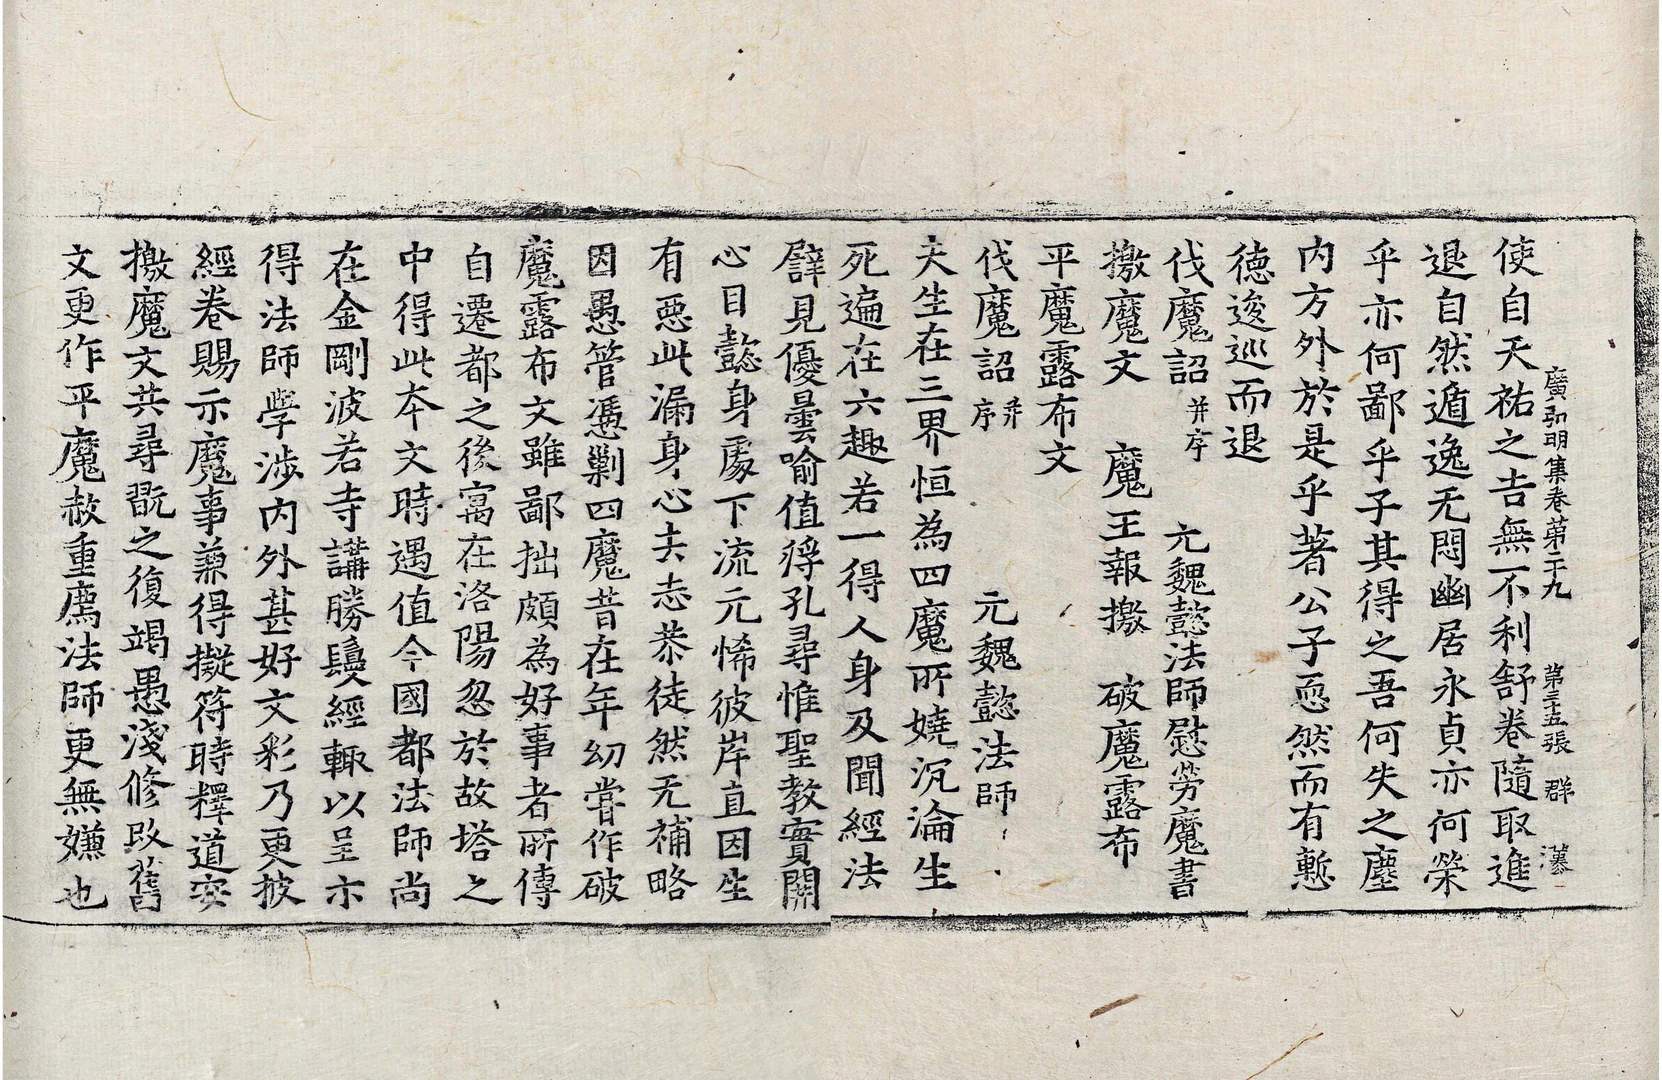 廣弘明集卷第二十九 第三十五張 群 漢
使自天祐之吉無不利舒卷隨取進
退自然遁逸无悶幽居永貞亦何榮
乎亦何鄙乎子其得之吾何失之塵
內方外於是乎著公子恧然而有慙
德逡巡而退
伐魔詔并序 元魏懿法師慰勞魔書
檄魔文 魔王報檄 破魔露布
平魔露布文
伐魔詔并序 元魏懿法師
夫生在三界恒為四魔所嬈沉淪生
死遍在六趣若一得人身及聞經法
譬見優曇喻值浮孔尋惟聖教實開
心目懿身處下流元悕彼岸直因生
有惡此漏身心去志恭徒然无補略
因愚管憑剿四魔昔在年幼嘗作破
魔露布文雖鄙拙頗為好事者所傳
自遷都之後寓在洛陽忽於故塔之
中得此本文時遇值今國都法師尚
在金剛波若寺講勝鬘經輙以呈示
得法師學涉內外甚好文彩乃更披
經卷賜示魔事兼得擬符時釋道安
檄魔文共尋翫之復竭愚淺修改舊
文更作平魔赦重廌法師更無嫌也